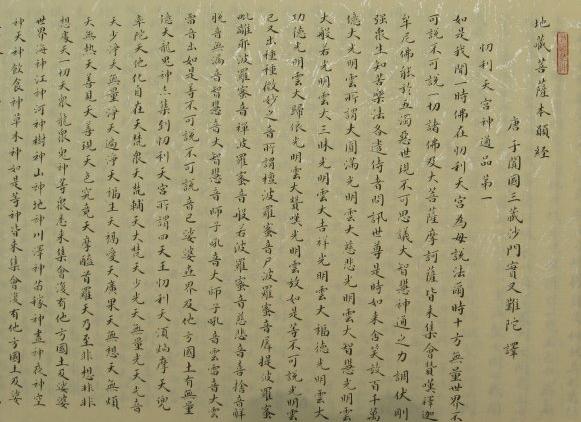 地藏菩薩本願經
唐于闐國三藏沙門實叉難陀譯
忉利天宮神通品第一
如是我聞一時佛在忉利天宮為母說法爾時十方無量世界不
可說不可說一切諸佛及大菩薩摩訶薩皆來集會贊嘆釋迦
牟尼佛能於五濁惡世現不可思議大智慧神通之力調伏剛
強眾生知苦樂法各遣侍者問訊世尊是時如來含笑放百千萬
億大光明雲所謂大圓滿光明雲大慈悲光明雲大智慧光明雲
大般若光明雲大三昧光明雲大吉祥光明雲大福德光明雲大
功德光明雲大歸依光明雲大贊嘆光明雲放如是等不可說光明雲
已又出種種微妙之音所謂檀波羅蜜音尸波羅蜜音羼提波羅蜜
毗離耶波羅蜜音禪波羅蜜音般若波羅蜜音慈悲音喜捨音解
脫音無漏音智慧音大智慧音師子吼音大師子吼音雲雷音大雲
雷音出如是等不可說不可說音已娑婆世界及他方國土有無量
億天龍鬼神亦集到忉利天宮所謂四天王忉利天須焰摩天兜
率陀天他化自在天梵眾天梵輔天大梵天少光天無量光天光音
天少淨天無量淨天遍淨天福生天福愛天廣果天無想天無煩
天無熱天善見天善現天色究竟天摩醯首羅天乃至非想非非
想處天一切天眾龍眾鬼神等眾悉來集會復有他方國土及娑婆
世界海神江神河神樹神山神地神川澤神苗稼神晝神夜神空
神天神飲食神草木神如是等神皆來集會復有他方國土及娑婆